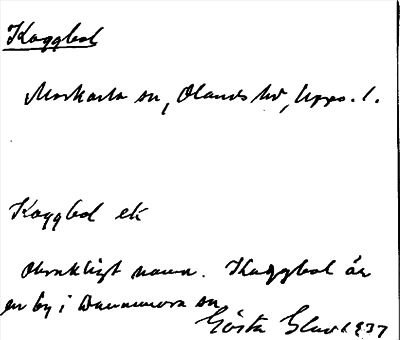 Kaggbol
Morkarla sn, Olands hd, Upps. l.
Kaggbol ek
Oriktigt namn. Kaggbol är
en by i Dannemora sn
Gösta 1937